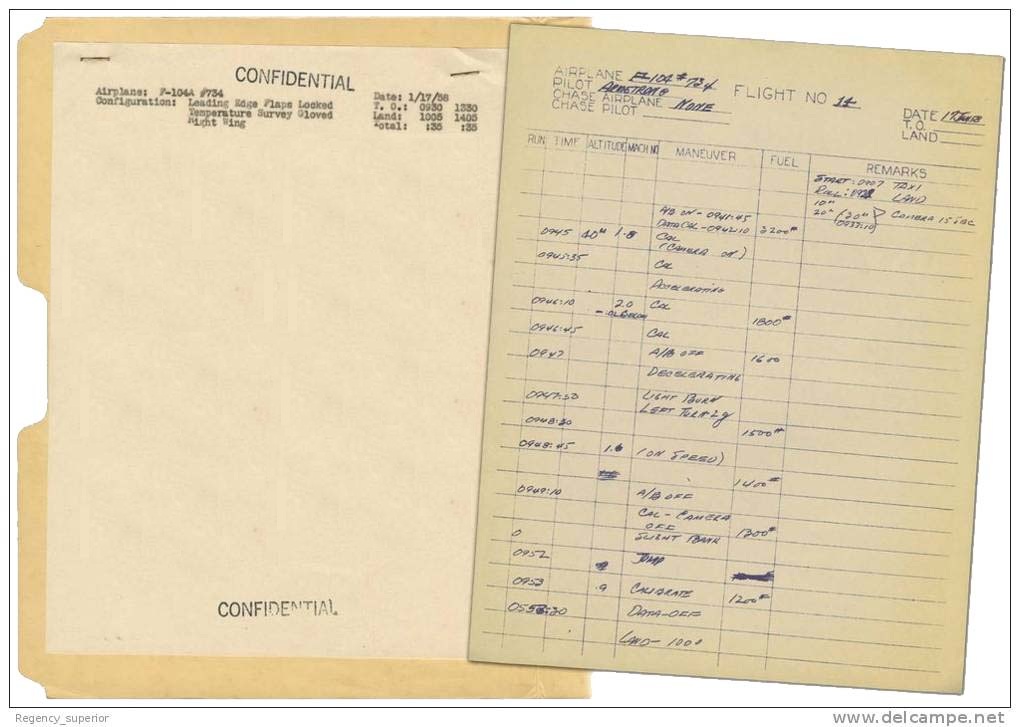 CONFIDENTIAL
Airplane: F-104A #734
Configuration: Leading Edge Flaps Locked
Temperature Survey Gloved
Right Wing
Date: 1/17/58
T. O.: 0930 1330
Land: 1005 1405
Total: :35 :35
CONFIDENTIAL
AIRPLANE F-104 # 734
PILOT ARMSTRONG
CHASE AIRPLANE NONE
CHASE PILOT
FLIGHT NO
DATE
T.O.
LAND
RUN TIME ALTITUDE MACH NO MANEUVER FUEL REMARKS
START: 0907 TAXI
LAND
10"
20" (20") CAMERA 15 SEC
A/B ON - 0941:45
DATA CAL - 0942:10 3200#
0945 1.8 CAL
(CAMERA ON)
0945:35 CAL
ACCELERATING
0946:10 2.0 CAL
1800#
0946:45 CAL
0947 A/B OFF 1600
DECELERATING
0947:50 LIGHT BURN
LEFT TURN 2g
0948:30 1500#
0948:45 1.6 (ON SPEED)
1400#
0949:10 A/B OFF
CAL - CAMERA
OFF
0 SLIGHT BANK 1300#
0952 JUMP
0953 .9 CALIBRATE 1200#
DATA-OFF
LAND - 1000
Regency_superior
delcampe.net